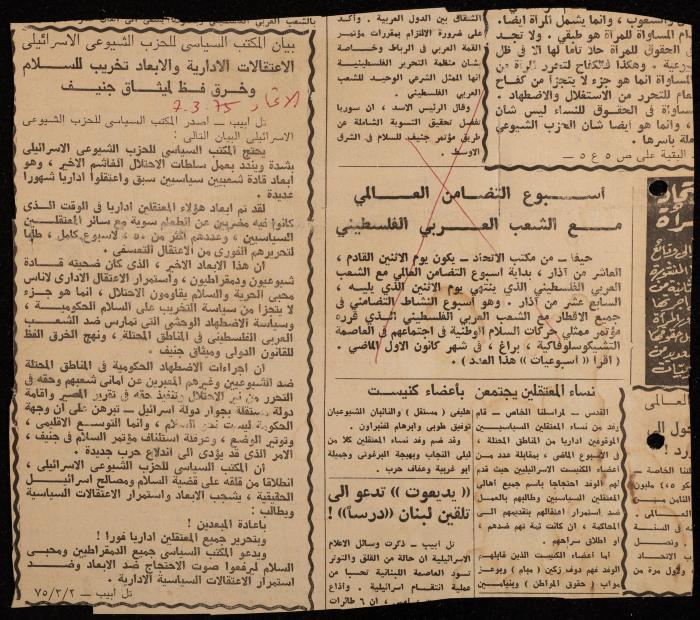 بيان المكتب السياسي للحزب الشيوعي الاسرائيلي
الاعتقالات الادارية والابعاد تخريب للسلام
وخرق فظ لميثاق جنيف
الاتحاد 7.3.75
تل ابيب — اصدر المكتب السياسي للحزب الشيوعي
الاسرائيلي البيان التالي :
يحتج المكتب السياسي للحزب الشيوعي الاسرائيلي
بشدة ويندد بعمل سلطات الاحتلال الغاشم الاخير ، وهو
ابعاد قادة شعبيين سياسيين سبق واعتقلوا اداريا شهورا
عديدة .
لقد تم ابعاد هؤلاء المعتقلين اداريا في الوقت الذي
كانوا فيه مضربين عن الطعام سوية مع سائر المعتقلين
السياسيين ، وعددهم اكثر من ٥٠ ، لاسبوع كامل ، طلبا
لتحريرهم الفوري من الاعتقال التعسفي .
ان هذا الابعاد الاخير ، الذي كان ضحيته قادة
شيوعيون ودمقراطيون ، واستمرار الاعتقال الاداري لاناس
محبي الحرية والسلام يقاومون الاحتلال ، انما هو جزء
لا يتجزا من سياسة التخريب على السلام الحكومية ،
وسياسة الاضطهاد الوحشي التي تمارس ضد الشعب
العربي الفلسطيني في المناطق المحتلة ، ونهج الخرق الفظ
للقانون الدولي وميثاق جنيف .
ان اجراءات الاضطهاد الحكومية في المناطق المحتلة
ضد الشيوعيين وغيرهم المعبرين عن اماني شعبهم وحقه في
التحرر من نير الاحتلال وتنفيذ حقه في تقرير المصير واقامة
دولة مستقلة بجوار دولة اسرائيل — تبرهن على ان وجهة
الحكومة ليست نحو السلام ، وانما التوسع الاقليمي ،
وتوتير الوضع ، وعرقلة استئناف مؤتمر السلام في جنيف ،
الامر الذي قد يؤدي الى اندلاع حرب جديدة .
ان المكتب السياسي للحزب الشيوعي الاسرائيلي ،
انطلاقا من قلقه على قضية السلام ومصالح اسرائيل
الحقيقية ، يشجب الابعاد واستمرار الاعتقالات السياسية
ويطالب :
باعادة المبعدين !
وبتحرير جميع المعتقلين اداريا فورا !
ويدعو المكتب السياسي جميع الدمقراطيين ومحبي
السلام ليرفعوا صوت الاحتجاج ضد الابعاد وضد
استمرار الاعتقالات السياسية الادارية .
تل ابيب — ٧٥/٣/٢
الشقاق بين الدول العربية . واكد
على ضرورة الالتزام بمقررات مؤتمر
القمة العربي في الرباط وخاصة
بشان منظمة التحرير الفلسطينية
انها الممثل الشرعي الوحيد للشعب
العربي الفلسطيني .
وقال الرئيس الاسد ، ان سوريا
تفضل تحقيق التسوية الشاملة عن
طريق مؤتمر جنيف للسلام في الشرق
الاوسط .
والشعوب ، وانما يشمل المراة ايضا .
المساواة للمراة هو طبقي . ولا تجد
الحقوق للمراة حلا تاما لها الا في ظل
وهكذا فالكفاح لتحرر المراة من
المساواة انما هو جزء لا يتجزا من كفاح
للتحرر من الاستغلال والاضطهاد .
مساواة في الحقوق للنساء ليس شان
، وانما هو ايضا شان الحزب الشيوعي
باسرها .
البقية على ص ٥ ع ٥ —
اسبوع التضامن العالمي
مع الشعب العربي الفلسطيني
حيفا — من مكتب الاتحاد — يكون يوم الاثنين القادم ،
العاشر من آذار ، بداية اسبوع التضامن العالمي مع الشعب
العربي الفلسطيني الذي ينتهي يوم الاثنين الذي يليه ،
السابع عشر من آذار . وهو اسبوع النشاط التضامني في
جميع الاقطار مع الشعب العربي الفلسطيني الذي قرره
مؤتمر ممثلي حركات السلام الوطنية في اجتماعهم في العاصمة
التشيكوسلوفاكية ، براغ ، في شهر كانون الاول الماضي .
( اقرا « اسبوعيات » هذا العدد ) .
نساء المعتقلين يجتمعن بأعضاء كنيست
القدس — لمراسلنا الخاص — قام
وفد من نساء المعتقلين السياسيين
الموقوفين اداريا من المناطق المحتلة ،
في الاسبوع الماضي ، بمقابلة عدد من
اعضاء الكنيست الاسرائيليين حيث قدم
لهم الوفد احتجاجا باسم جميع اهالي
المعتقلين السياسيين وطالبهم بالعمل
ضد استمرار اعتقالهم بتقديمهم الى
المحاكمة ، ان كانت ثمة تهم ضدهم ،
او اطلاق سراحهم .
اما أعضاء الكنيست الذين قابلهم
الوفد فهم دوف زكين ( مبام ) وبوعز
موآب ( حقوق المواطن ) وبنيامين
هليفي ( مستقل ) والنائبان الشيوعيان
توفيق طوبي وابرهام لفنبراون .
وقد ضم وفد نساء المعتقلين كلا من
ليلى النجاب وبهيجة البرغوثي وجميلة
ابو غربية وعفاف حرب .
« يديعوت » تدعو الى
تلقين لبنان « درسا » !
تل ابيب — ذكرت وسائل الاعلام
الاسرائيلية ان حالة من القلق والتوتر
تسود العاصمة اللبنانية تحسبا من
عملية انتقام اسرائيلية . واذاع
، ان ٦ طائرات